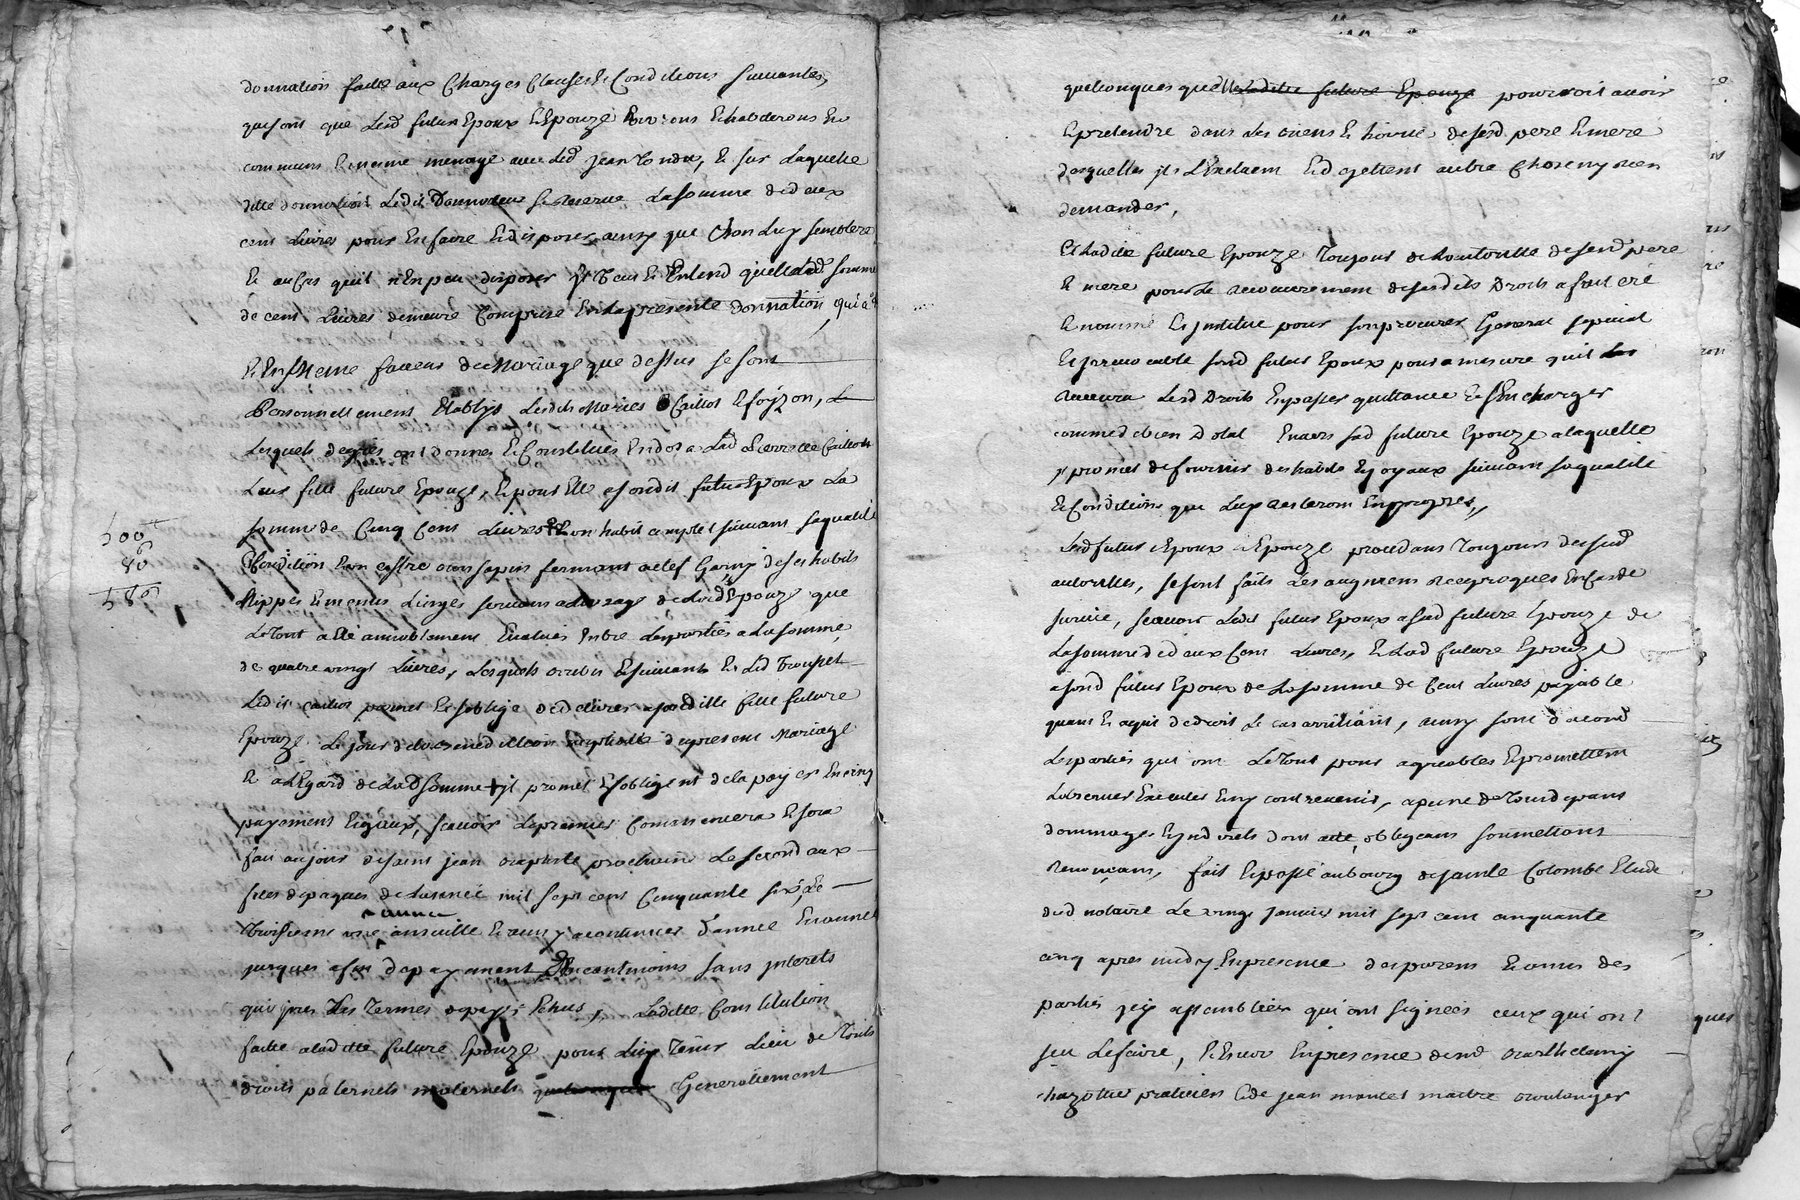 donnation faitte aux Charges Clauses et Conditions suivantes,
qui sont que lesd futurs Epoux et Epouze vivrons et habiterons en
commun et meme menage avec led jean , et sur laquelle
ditte donnation ledit Donnateur se reserve la somme de deux
cens livres pour en faire et disposer ainsy que bon luy semblera
et au cas quil n'en peu disposer yl veut et Entend quelle lad somme
de cens livres demeure Comprise en la presente donnation, qui a
et En Meme faveur de Mariage que dessus se sont
Personnellement Etablys lesdits Maries Caillot et foyzon, 
lesquels de gres ont donnes et Constitués en dot a lad Pierrette Caillot
leur fille future Epouze, et pour Elle a sondit futur Epoux la
500
somme de Cinq Cens livres et son habit complet suivant sa qualité
80
et Condition un coffre bois sapin fermant a clef Garny de ses habits
580
Nippes et menus linges servans a lusage de lad Epouze que
le tout a été amiablement Evalués entre les parties a la somme
de quatre vingt livres, lesquels et led Troupet
ledit caillot promet et soblige de delivrer a sad ditte fille future
Epouze le jour de la benediction nuptialle du present Mariage
et a l'Egard de lad somme yl promet et soblige nt de la payer en cinq
payemens Egaux, scavoir le premier Commencera et sera
fait au jour de saint jean baptiste prochain le second aux
fetes de paques de l'année mil sept cens Cinquante six, et le
année
troisieme une an suitte et ainsy a continuer d'année En année
jusques a fin de payement Neantmoins sans jnterets
que les termes de payes Echus, laditte Constitution
faitte a laditte future Epouze pour luy tenir lieu de touts
droits paternels maternels quelconques Generallement
quelconques que laditte future Epouze pourroit avoir
et pretendre dans les biens et hoirie de sesd pere et mere
desquelles yls l'Excluem et dy jettent autre chose ny rien
demander,
Et laditte future Epouze toujours de l'autorité de sesd pere
et mere pour le recouvrement de sesdits Droits a fait cré
et nommé et jnstitué pour son procureur General special
et jrrevocable sond futur Epoux pour a mesure quil
recevra lesd Droits En passer quittance et sen charger
comme de bien Dotal Envers sad future Epouze a laquelle
yl promet de fournir des habits et joyaux suivam sa qualité
et Condition que luy resteront En propres,
lesd futurs Epoux et Epouze procedans toujours desusd
autorités, se sont faits les augmens reciproques En cas de
survie, scavoir ledit futur Epoux a sad future Epouze de
la somme de deux Cens livres, et lad future Epouze
a sond futur Epoux de la somme de Cens livres payable
quant et aquit de droit le cas arrivant, ainsy sont d'acord
les parties qui ont le tout pour agreables et promettem
l'observer Executer et ny contrevenir, a peine de tous depans
dommages et jnterets dont acte, obligeans soumettans
renonçans, fait et passé au bourg de sainte Colombe Etude
dud notaire le vingt Janvier mil sept cent cinquante
cinq apres midy En presence des parens et amis des
parties jcy assemblées qui ont signées ceux qui ont
seu le faire, et Encor En presence de sr barthelemy
chazottier praticien et de jean montet maitre boulanger